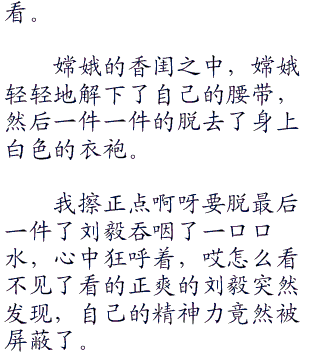 看。
嫦娥的香闺之中，嫦娥
轻轻地解下了自己的腰带，
然后一件一件的脱去了身上
白色的衣袍。
我擦正点啊呀要脱最后
一件了刘毅吞咽了一口口
水，心中狂呼着，哎怎么看
不见了看的正爽的刘毅突然
发现，自己的精神力竟然被
屏蔽了。